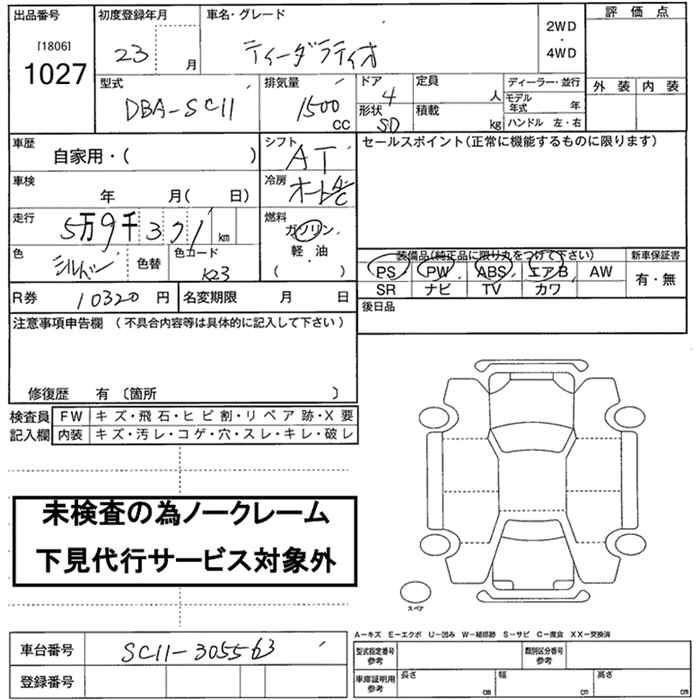 出品番号 初度登録年月 車名・グレード 評価点
[1806] 1027 23 月 ティーダラティオ 2WD・4WD
外装 内装
型式 DBA-SC11 排気量 1500 cc ドア 4 形状 SD 定員 人 積載 kg
ディーラー・並行
モデル年式 年
ハンドル 左・右
車歴 自家用・( )
シフト AT
セールスポイント(正常に機能するものに限ります)
車検 年 月( 日)
冷房 オートA/C
走行 5万9千371 km
燃料 ガソリン・軽・油 ( )
色 シルバー 色替 色コード K23
装備品(純正品に限り丸をつけて下さい) 新車保証書
PS PW ABS エアB AW 有・無
SR ナビ TV カワ
R券 10320円 名変期限 月 日
後日品
注意事項申告欄 (不具合内容等は具体的に記入して下さい)
修復歴 有 〔箇所 〕
検査員記入欄
FW キズ・飛石・ヒビ割・リペア跡・X要
内装 キズ・汚レ・コゲ・穴・スレ・キレ・破レ
未検査の為ノークレーム
下見代行サービス対象外
スペア
A−キズ E−エクボ U−凹み W−補修跡 S−サビ C−腐食 XX−交換済
車台番号 SC11-305563
登録番号
型式指定番号参考 類別区分番号参考
車庫証明用参考 長さ cm 幅 cm 高さ cm